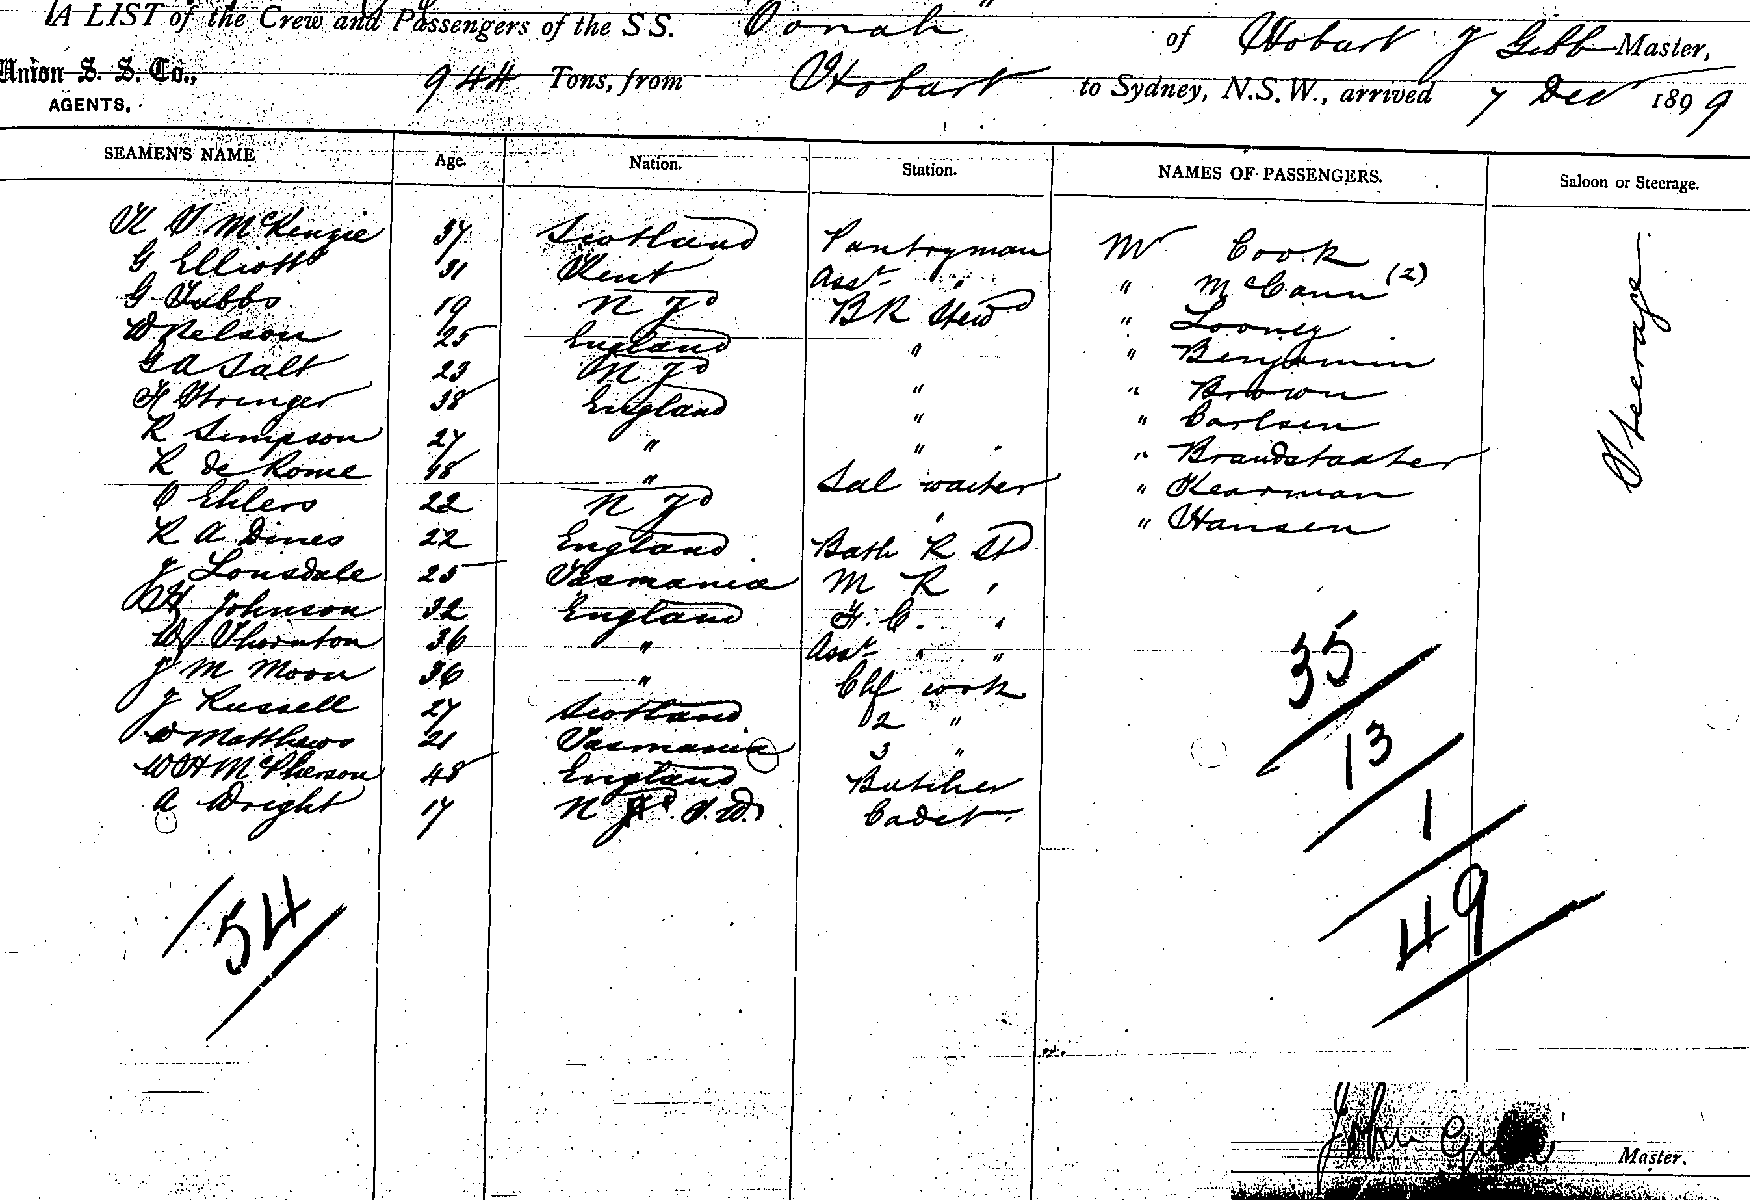 A LIST of the Crew and Passengers of the SS. "Oonah" of Hobart J Gibb Master,
Union S. S. Co., 944 Tons, from Hobart to Sydney, N.S.W., arrived 7 Dec 1899
AGENTS.
SEAMEN'S NAME Age. Nation. Station. NAMES OF PASSENGERS. Saloon or Steerage.
McKenzie 37 Scotland Pantryman Mr Cook
G Elliott 31 Kent Asst " " McCann (2)
G Tubbs 19 N Zd B R Stewd " Looney
W Nelson 25 England " " Benjamin
G A Salt 23 N Zd " " Brown
H Stringer 38 England " " Carlsen
R Simpson 27 " " " Brandstaater
R de Rome 18 " Sal waiter " Kearman
O Ehlers 22 N Zd " " Hansen
R A Dines 22 England Bath R Std
J Lonsdale 25 Tasmania M R "
Johnson 32 England F. C. "
W Thornton 36 " Asst " "
J M Moon 36 " Chf cook
J Russell 27 Scotland 2 "
W Matthews 21 Tasmania 3 "
W H McPherson 48 England Butcher
A Wright 17 N Cadet
Steerage
35
13
1
49
54
John Gibb Master.